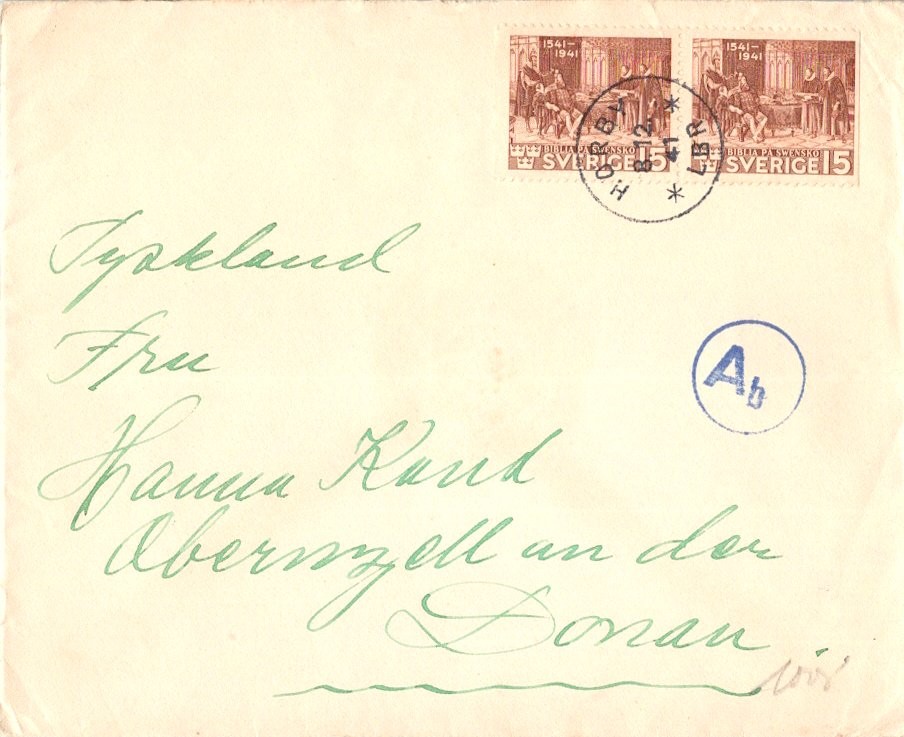 1541-
1941
BIBLIA PÅ SWENSKO
SVERIGE 15
1541-
1941
BIBLIA PÅ SWENSKO
SVERIGE 15
HÖRBY
8.12.
41
* LBR *
Tyskland
Fru
Ab
Hanna Kand
Obernzell an der
Donau